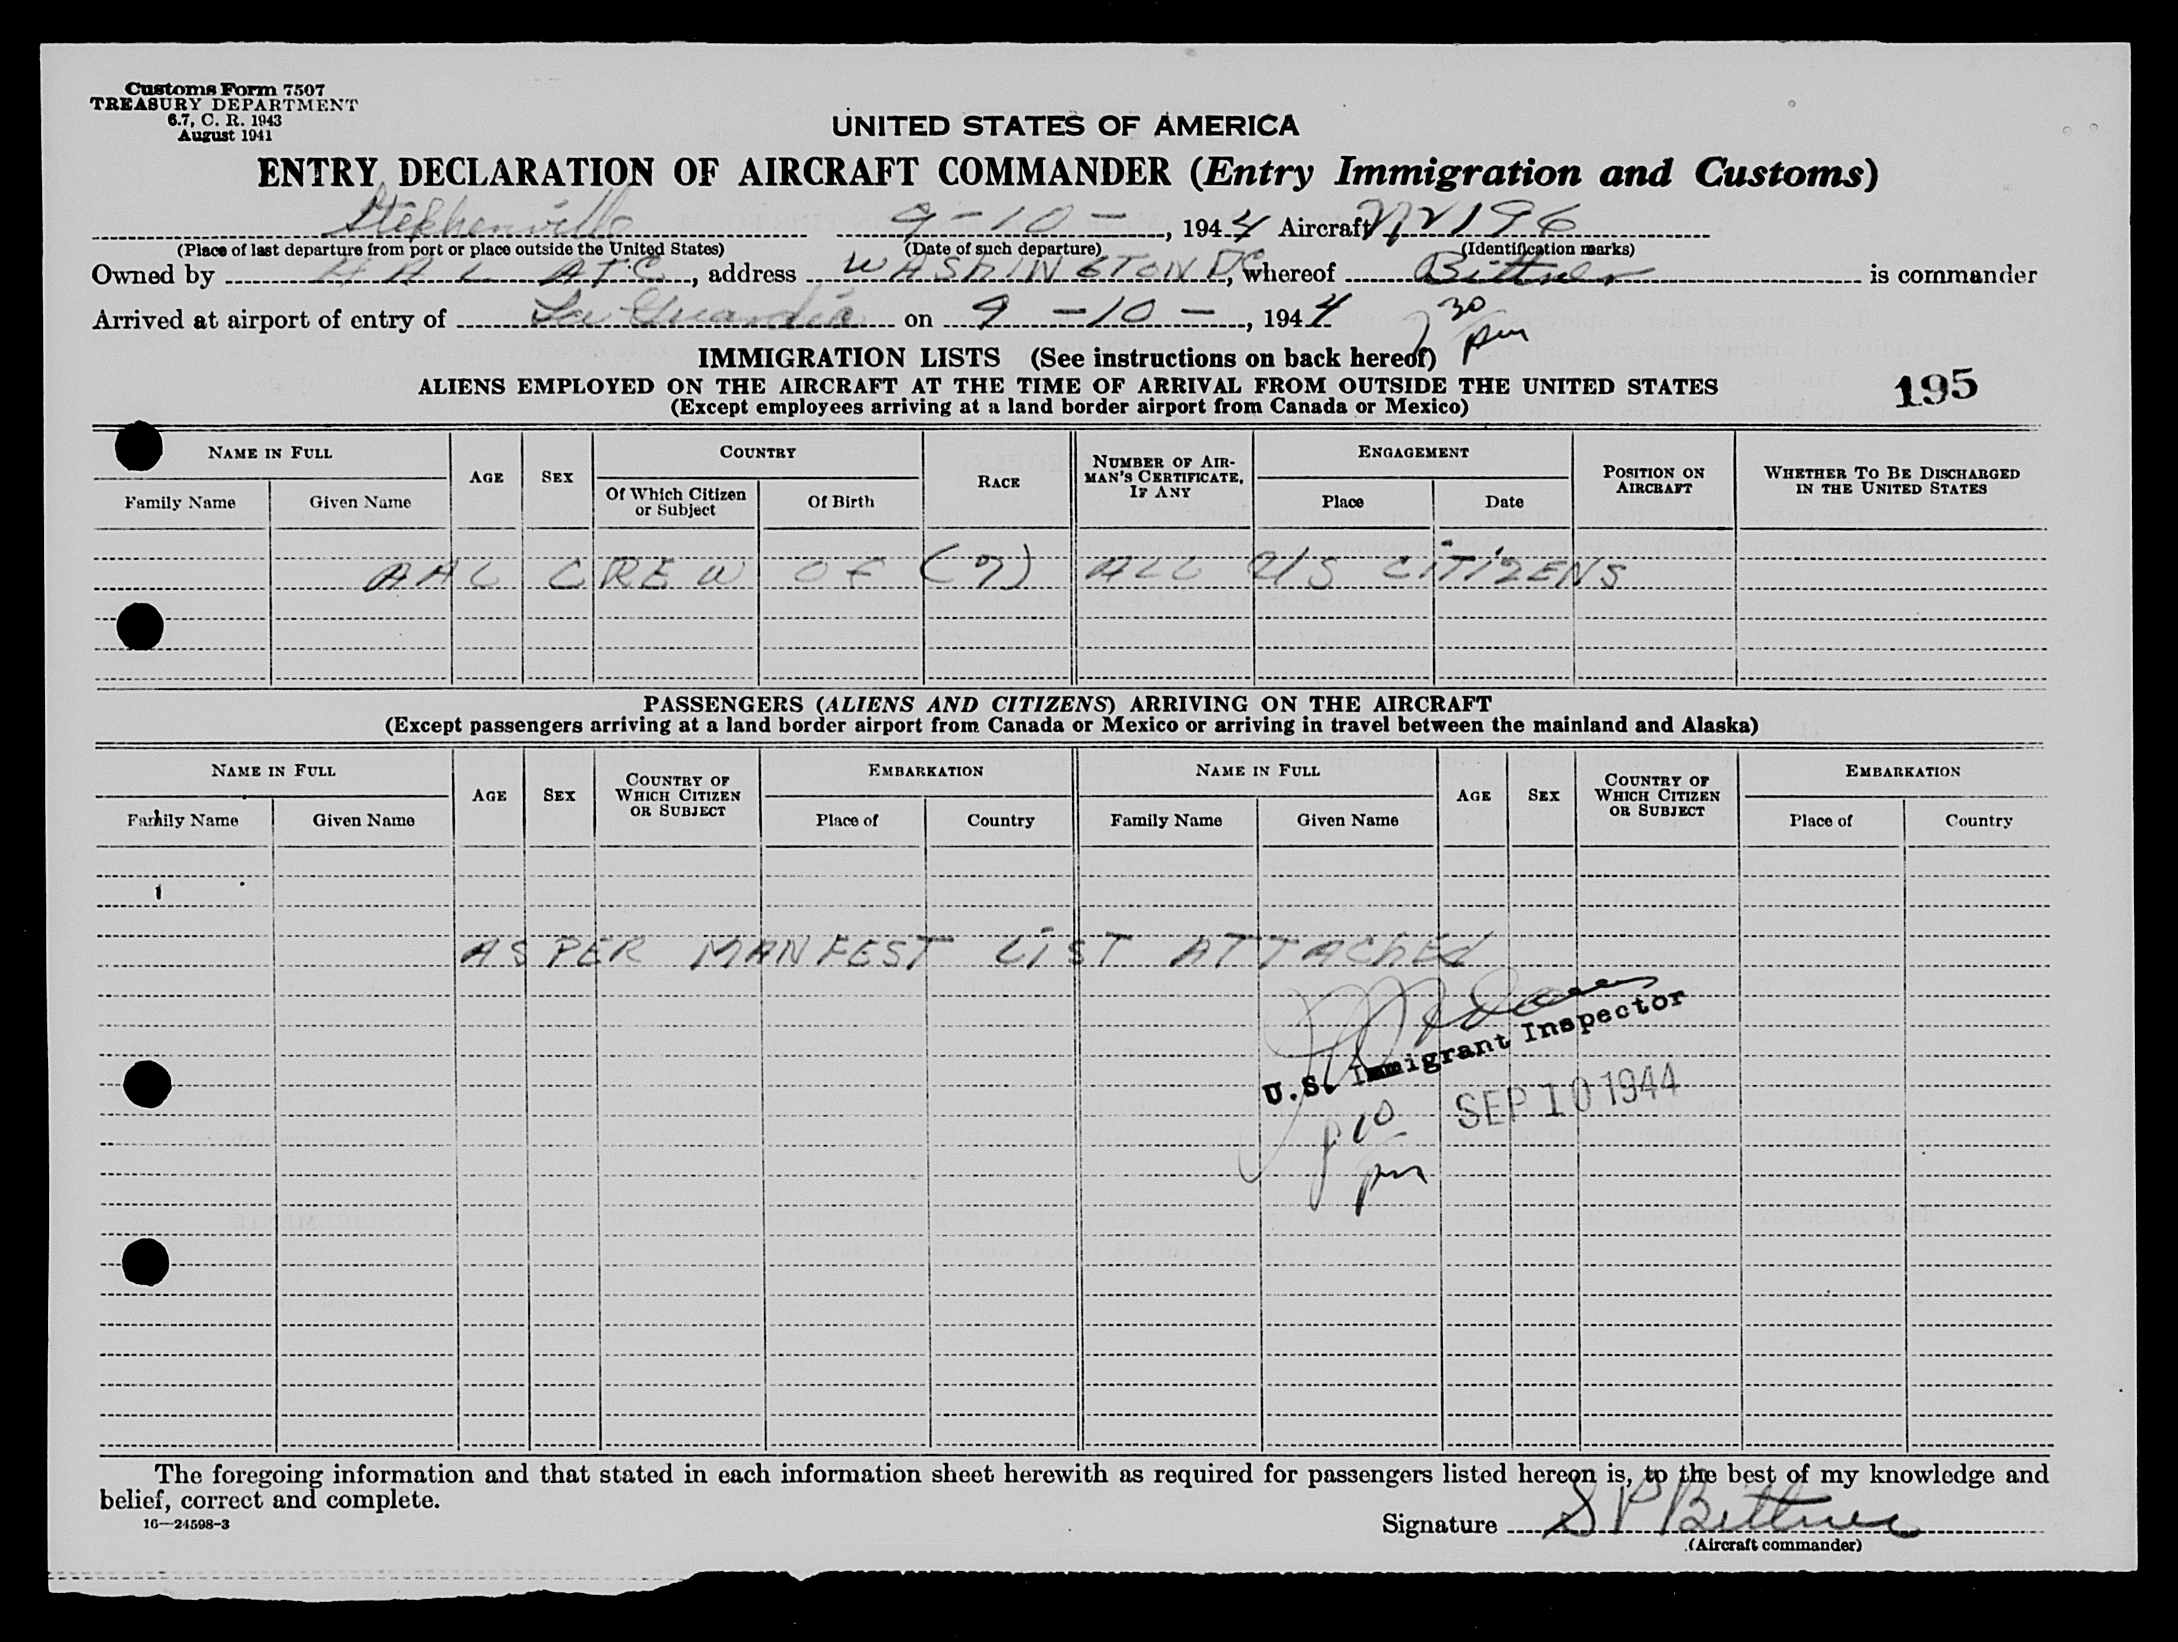 Customs Form 7507
TREASURY DEPARTMENT
6.7, C. R. 1943
August 1941
UNITED STATES OF AMERICA
ENTRY DECLARATION OF AIRCRAFT COMMANDER (Entry Immigration and Customs)
Stephenville 9-10-, 1944 Aircraft 196
(Place of last departure from port or place outside the United States) (Date of such departure) (Identification marks)
Owned by AAL ATC, address WASHINGTON DC, whereof Bittner is commander
Arrived at airport of entry of La Guardia on 9-10-, 1944 30 pm
IMMIGRATION LISTS (See instructions on back hereof)
ALIENS EMPLOYED ON THE AIRCRAFT AT THE TIME OF ARRIVAL FROM OUTSIDE THE UNITED STATES
(Except employees arriving at a land border airport from Canada or Mexico)
195
NAME IN FULL AGE SEX COUNTRY RACE NUMBER OF AIRMAN'S CERTIFICATE, IF ANY ENGAGEMENT POSITION ON AIRCRAFT WHETHER TO BE DISCHARGED IN THE UNITED STATES
Family Name Given Name Of Which Citizen or Subject Of Birth Place Date
AAL CREW OF (7) ALL US CITIZENS
PASSENGERS (ALIENS AND CITIZENS) ARRIVING ON THE AIRCRAFT
(Except passengers arriving at a land border airport from Canada or Mexico or arriving in travel between the mainland and Alaska)
NAME IN FULL AGE SEX COUNTRY OF WHICH CITIZEN OR SUBJECT EMBARKATION NAME IN FULL AGE SEX COUNTRY OF WHICH CITIZEN OR SUBJECT EMBARKATION
Family Name Given Name Place of Country Family Name Given Name Place of Country
AS PER MANFEST LIST ATTACHED
U.S. Immigrant Inspector
SEP 10 1944
10
pm
The foregoing information and that stated in each information sheet herewith as required for passengers listed hereon is, to the best of my knowledge and
belief, correct and complete.
16—24598-3
Signature S P Bittner
(Aircraft commander)